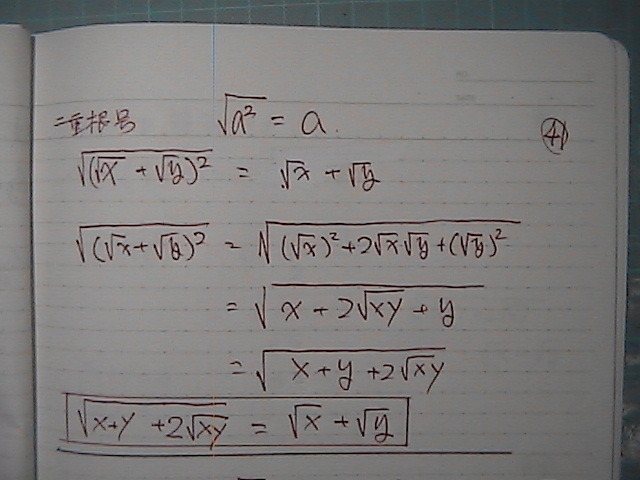 二重根号 √(a²) = a.
④
√((√x + √y)²) = √x + √y
√((√x + √y)²) = √((√x)² + 2√x√y + (√y)²)
= √(x + 2√(xy) + y)
= √(x + y + 2√(xy))
√(x+y + 2√(xy)) = √x + √y